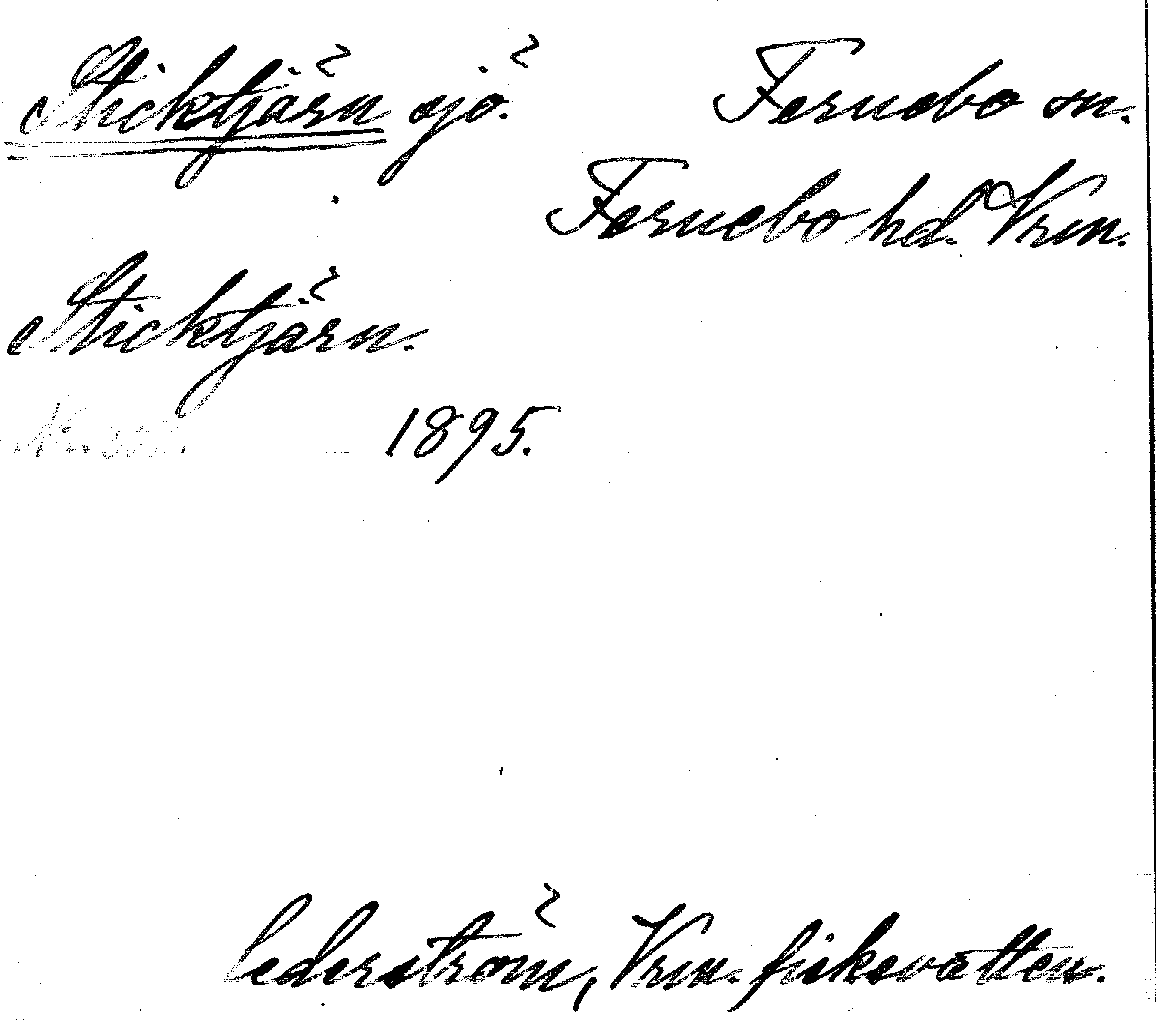 Sticktjärn sjö. Fernebo sn.
Fernebo hd. Vrm.
Sticktjärn.
1895.
Cederström, Vrm. fiskevatten.